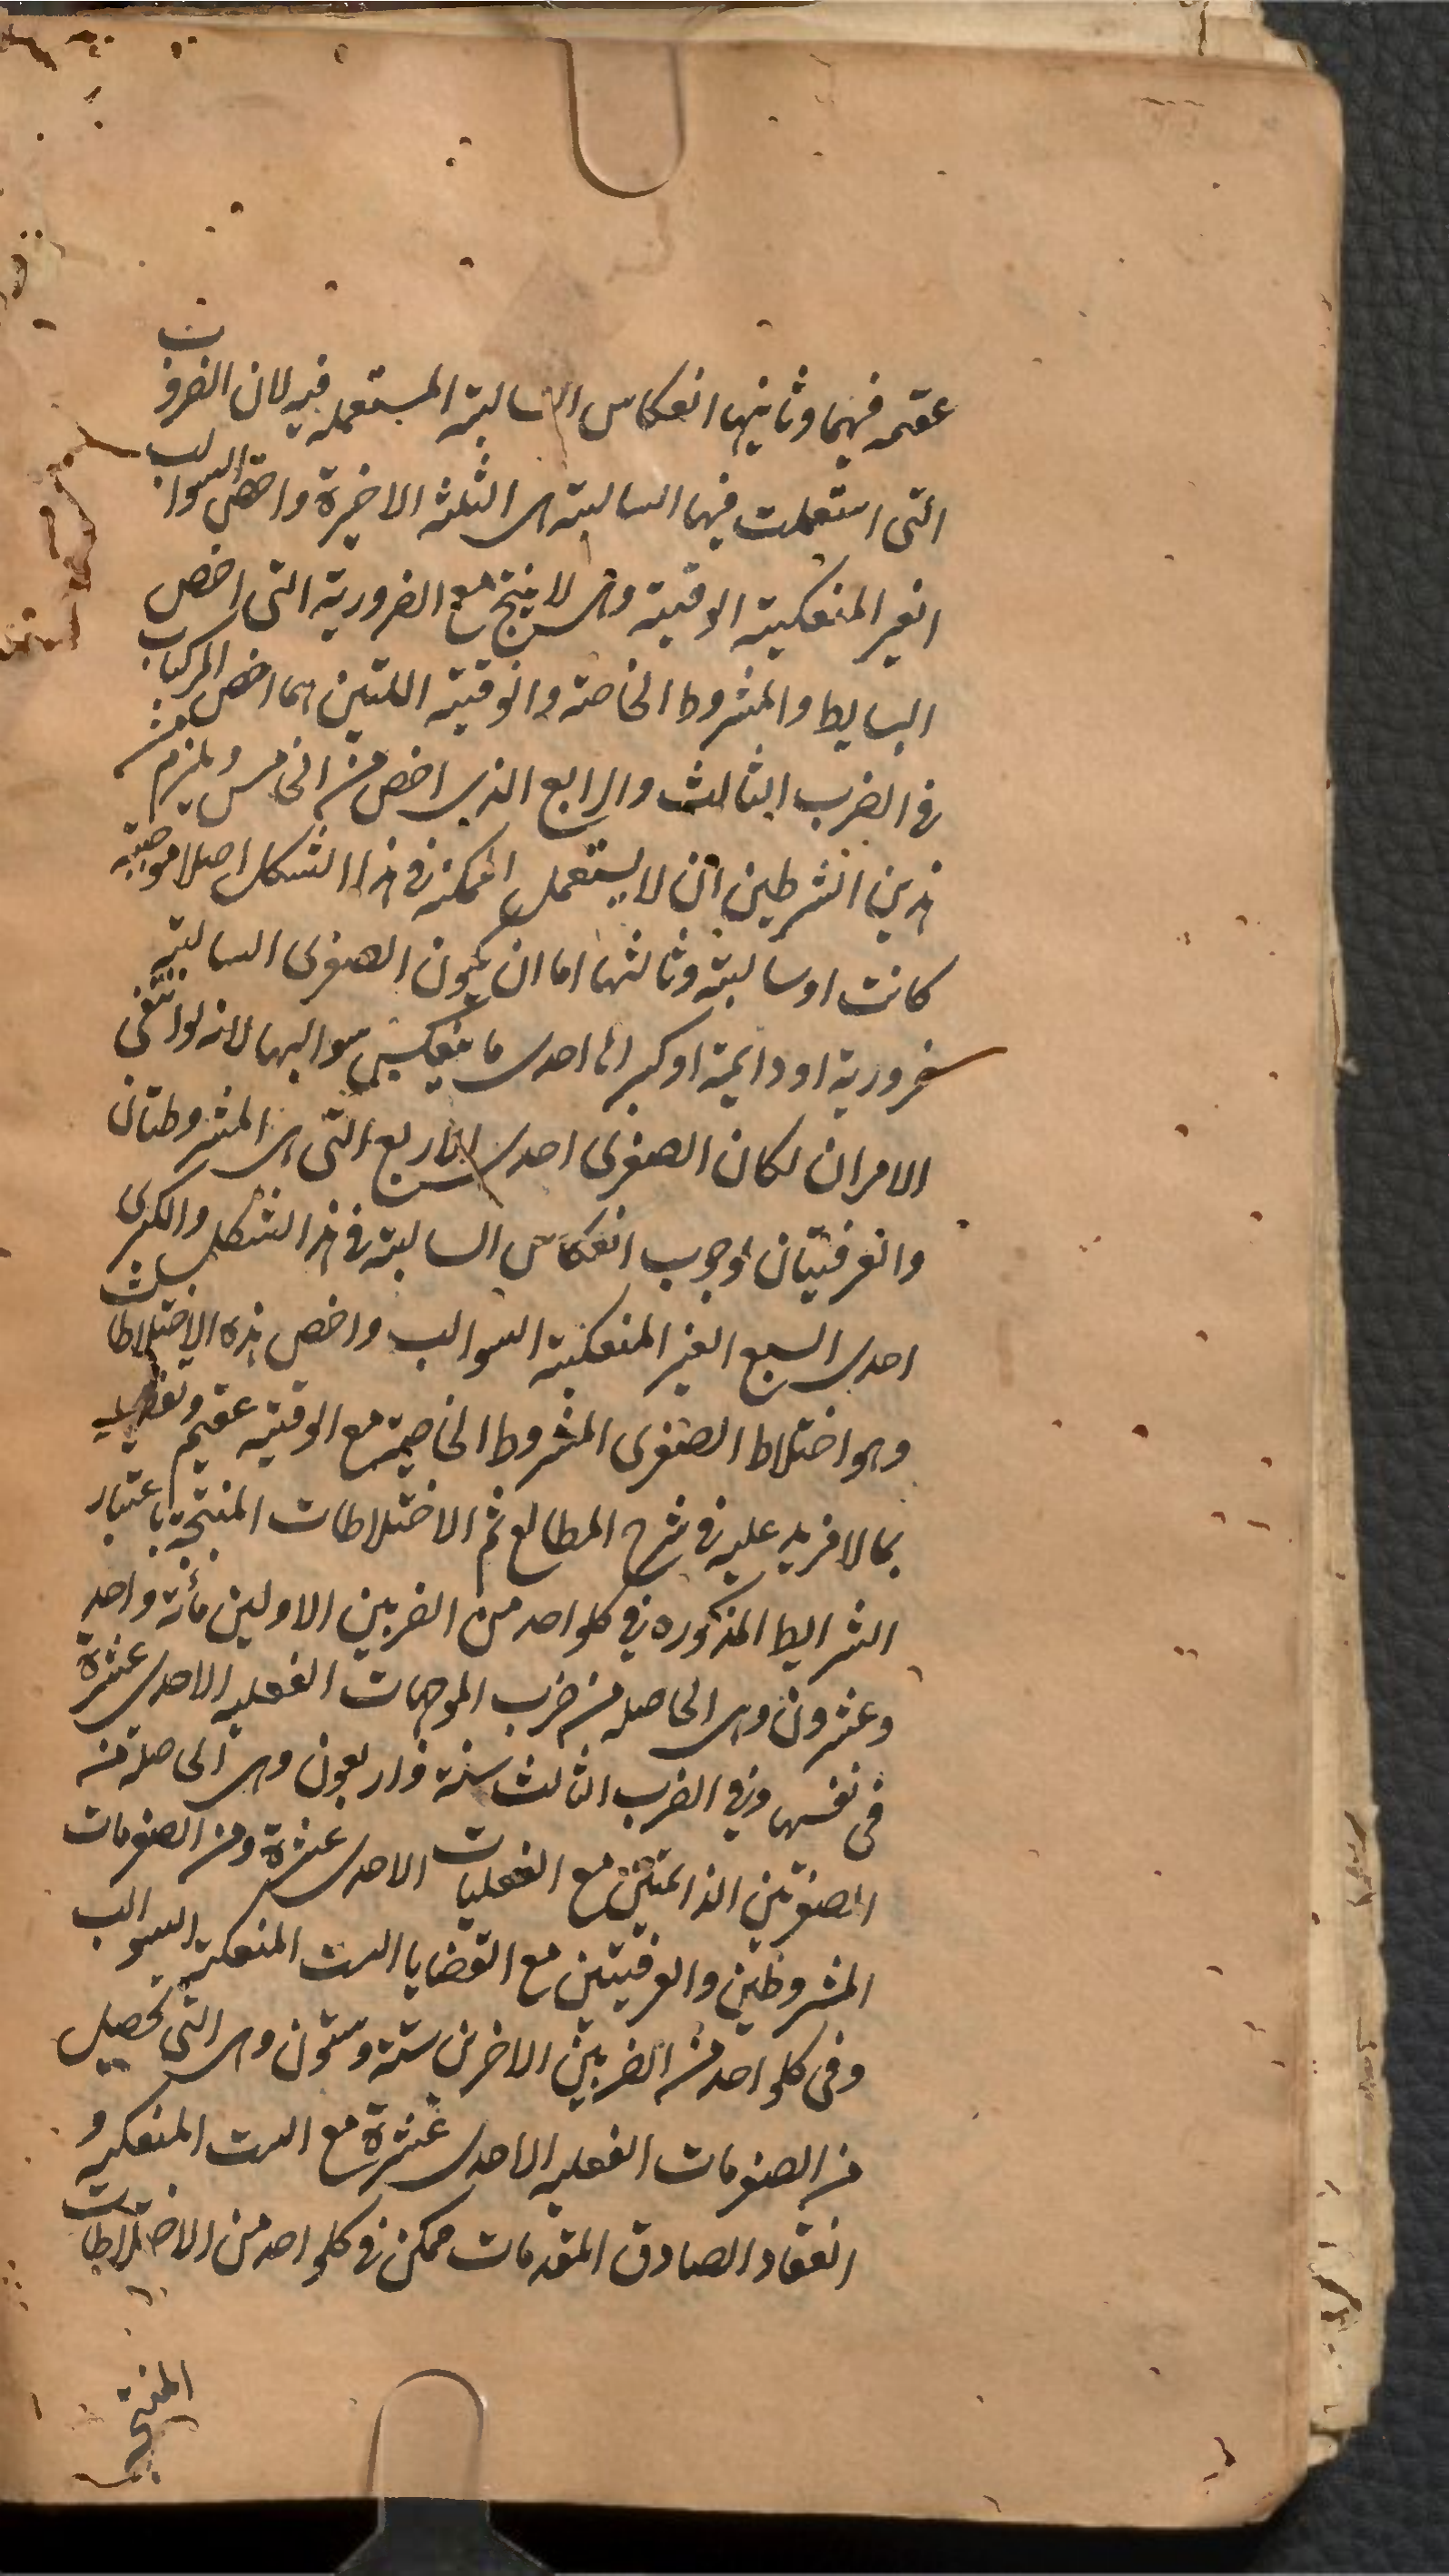 عقمه فيهما وثانيها انعكاس السالبة المستعمله فيه لان الضروب
التى استعملت فيها السالبة هى الثلثه الاخيرة واخص السوالب
الغير المنعكسة الوقتية وهى لا ينتج مع الضرورية التى اخص
البسايط والمشروط الخاصة والوقتية اللتين هما اخص المركبات
فى الضرب الثالث والرابع الذى اخص من الخامس ويلزم من
هذين الشرطين ان لا يستعمل الممكنة فى هذا الشكل اصلا موجبة
كانت او سالبة وثالثها اما ان يكون الصغرى السالبة
ضرورية او دايمة او كبراها احدى ما ينعكس سوالبها لانه لو انتفى
الامران لكان الصغرى احدى الاربع التى هى المشروطتان
والعرفيتان لوجوب انعكاس السالبة فى هذا الشكل والكبرى
احدى السبع الغير المنعكسة السوالب واخص هذه الاختلاطات
وهو اختلاط الصغرى المشروط الخاصة مع الوقتية عقيم وتفصيله
بما لا مزيد عليه فى شرح المطالع ثم الاختلاطات المنتجة باعتبار
الشرايط المذكوره فى كلواحد من الضربين الاولين مائة واحد
وعشرون وهى الحاصله من ضرب الموجهات الفعليه الاحدى عشرة
فى نفسها وفى الضرب الثالث ستة واربعون وهى الحاصلة من
الصغرتين الدائمتين مع الفعليات الاحدى عشرة ومن الصغريات
المشروطتين والعرفيتين مع القضايا الست المنعكسة السوالب
وفى كلواحد من الضربين الاخرين ستة وستون وهى التى تحصل
من الصغريات الفعليه الاحدى عشرة مع الست المنعكسه و
انعقاد الصادق المقدمات ممكن فى كلواحد من الاختلاطات
المنتجة